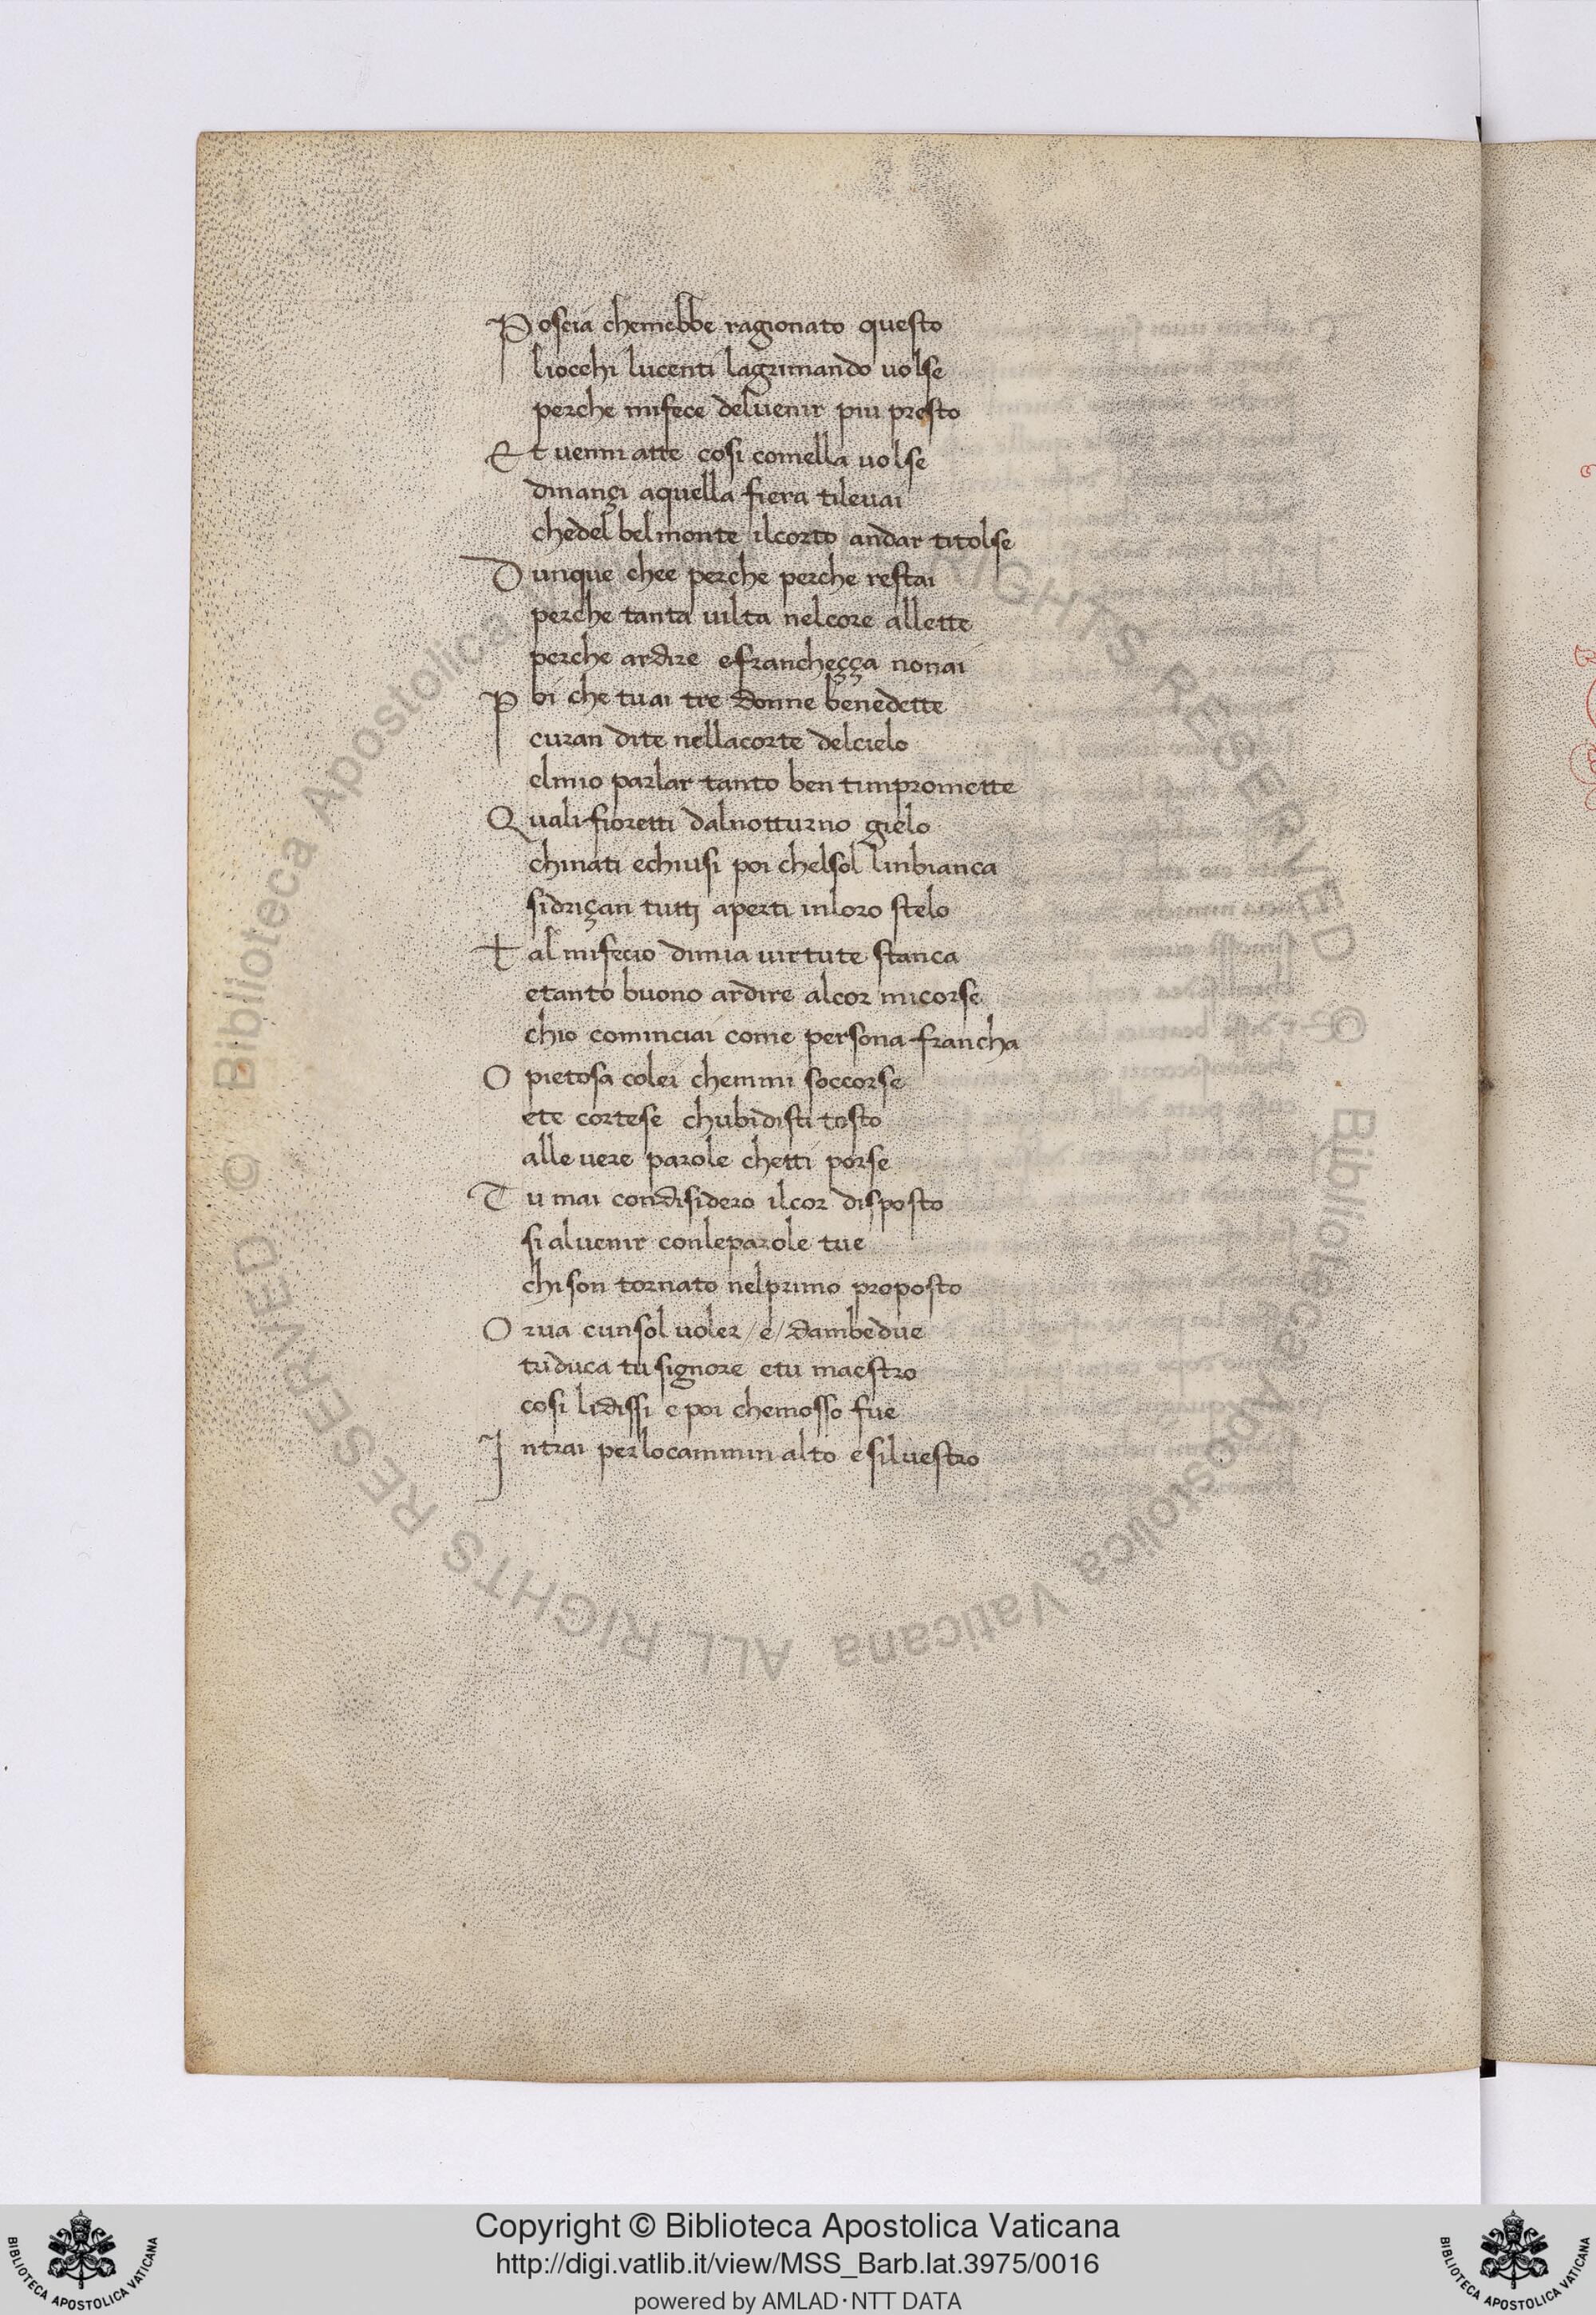 Poscia chemebbe ragionato questo
liocchi lucenti lagrimando uolse
perche mifece deluenir piu presto
Et uenni atte cosi comella uolse
dinançi aquella fiera tileuai
chedel belmonte ilcorto andar titolse
Dunque chee perche perche restai
perche tanta uilta nelcore allette
perche ardire efrancheçça nonai
Pbi che tuai tre donne benedette
curan dite nellacorte delcielo
elmio parlar tanto ben timpromette
Quali fioretti dalnotturno gielo
chinati echiusi poi chelsol linbianca
sidriçan tutti aperti inloro stelo
tal mifecio dimia uirtute stanca
etanto buono ardire alcor micorse
chio cominciai come persona francha
O pietosa colei chemmi soccorse
ete cortese chubidisti tosto
alle uere parole chetti porse
Tu mai condisidero ilcor disposto
si aluenir conleparole tue
chison tornato nelprimo proposto
Orua cunsol uoler /e/ dambedue
tuduca tu signore etu maestro
cosi lidissi e poi chemosso fue
Intrai perlocammin alto esiluestro
© Biblioteca Apostolica Vaticana ALL RIGHTS RESERVED © Biblioteca Apostolica Vaticana ALL RIGHTS RESERVED
Copyright © Biblioteca Apostolica Vaticana
http://digi.vatlib.it/view/MSS_Barb.lat.3975/0016
powered by AMLAD·NTT DATA
BIBLIOTECA APOSTOLICA VATICANA
BIBLIOTECA APOSTOLICA VATICANA